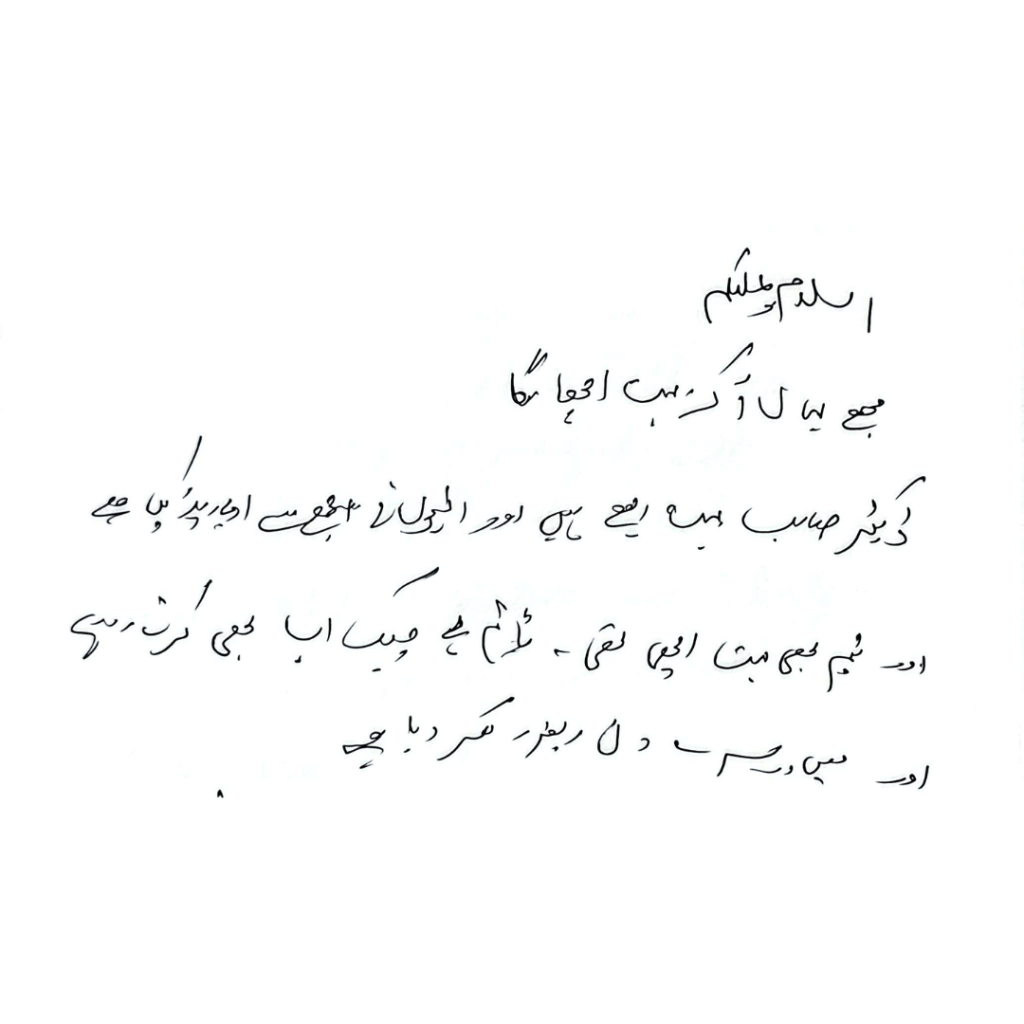 اسلام وعلیکم
مجھے یہاں آ کر بہت اچھا لگا
ڈاکٹر صاحب بہت اچھے ہیں اور انہوں نے اچھے سے کیا ہے
اور ٹیم بھی بہت اچھی تھی - ٹائم پے چیک اپ بھی کرتے رہے
اور میں دوسرے کر دیا ہے